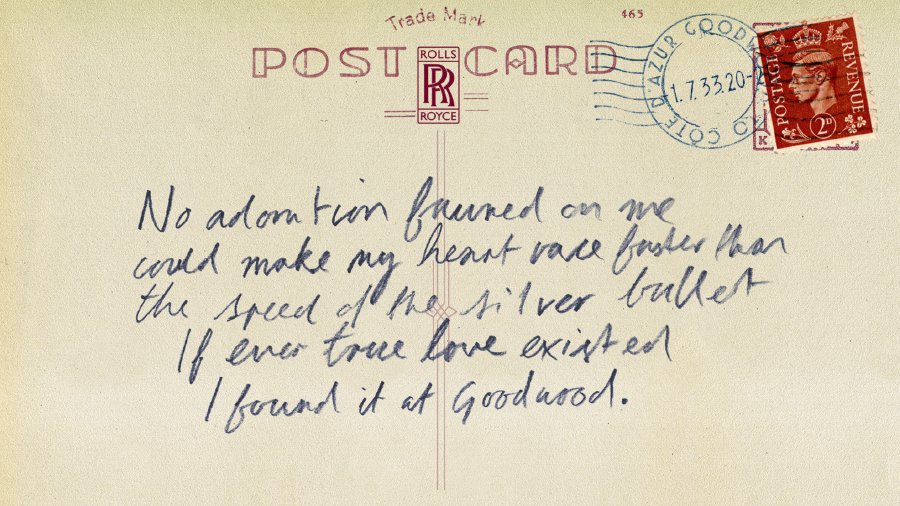 Trade Mark
465
POST CARD
ROLLS
RR
ROYCE
CÔTE D'AZUR GOODW
1.7.33.20-2
POSTAGE
REVENUE
2D
K
No adoration fawned on me
could make my heart race faster than
the speed of the silver bullet
If ever true love existed
I found it at Goodwood.